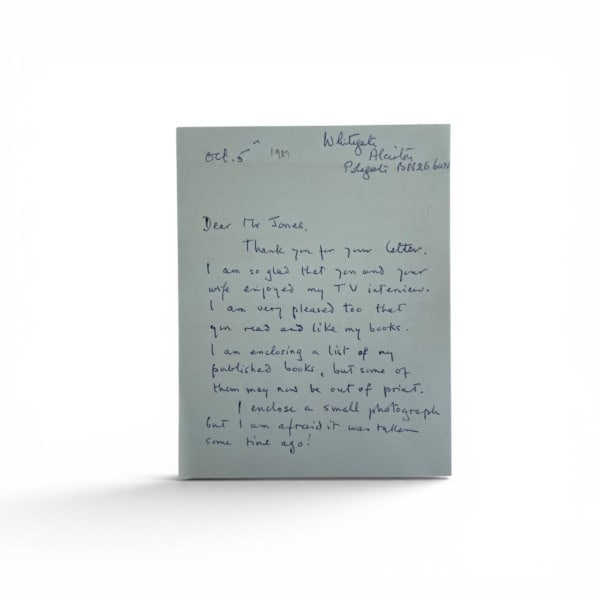 Whitegate
Alciston
Polegate BN26 6UN
Oct. 5th 1981
Dear Mr Jones.
Thank you for your letter.
I am so glad that you and your
wife enjoyed my TV interview.
I am very pleased too that
you read and like my books.
I am enclosing a list of my
published books, but some of
them may now be out of print.
I enclose a small photograph
but I am afraid it was taken
some time ago!